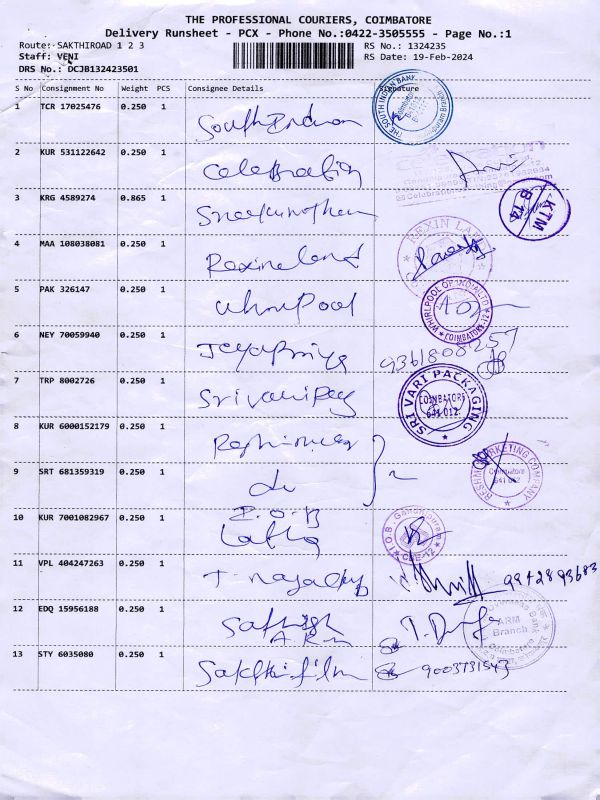 THE PROFESSIONAL COURIERS, COIMBATORE
Delivery Runsheet - PCX - Phone No.:0422-3505555 - Page No.:1
Route: SAKTHIROAD 1 2 3 RS No.: 1324235
Staff: VENI RS Date: 19-Feb-2024
DRS No.: DCJB132423501
S No Consignment No Weight PCS Consignee Details Signature
1 TCR 17025476 0.250 1 South Indian
THE SOUTH INDIAN BANK
2 KUR 531122642 0.250 1 Celebration
3 KRG 4589274 0.865 1
KTM
B 14
4 MAA 108038081 0.250 1 Rexine land
REXIN LAND
5 PAK 326147 0.250 1 Whirlpool
WHIRLPOOL OF INDIA LTD
COIMBATORE-12
6 NEY 70059940 0.250 1 Jayapriya 9361808257
7 TRP 8002726 0.250 1 Srivari
SRI VARI PACKAGING
COIMBATORE
641 012.
8 KUR 6000152179 0.250 1
9 SRT 681359319 0.250 1
MARKETING COMPANY
Coimbatore
641 012
10 KUR 7001082967 0.250 1 I.O.B
I.O.B. Gandhipuram
CBE-12
11 VPL 404247263 0.250 1 9942893683
12 EDQ 15956188 0.250 1 Sathish
Overseas Bank
ARM
Branch
Coimbatore
13 STY 6035080 0.250 1 Sakthi film 9003731543